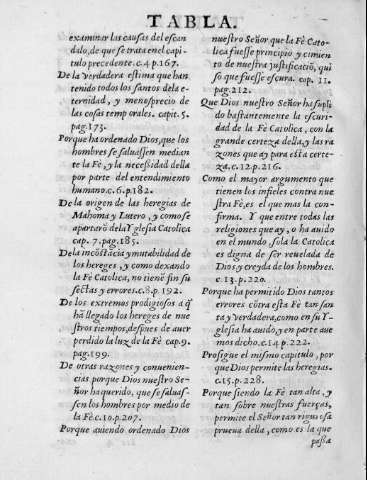 TABLA.
examinar las causas del escan
dalo, de que se trata en el capi
tulo precedente. c.4 p.167.
De la verdadera estima que han
tenido todos los santos de la e-
ternidad, y menosprecio de
las cosas temporales. capit. 5.
pag.173.
Porque ha ordenado Dios, que los
hombres se saluassen median
te la Fè, y la necessidad della
por parte del entendimiento
humano. c.6. p.182.
De la origen de las heregias de
Mahoma y Lutero, y como se
apartarõ de la Yglesia Catolica
cap. 7. pag. 185.
De la incõstãcia y mutabilidad de
los hereges, y como dexando
la Fè Catolica, no tienẽ sin su
sectas y errores. c.8. p. 192.
De los extremos prodigiosos à q̃
hã llegado los hereges de nue
stros tiempos, despues de auer
perdido la luz de la Fè. cap.9.
pag.199.
De otras razones y conuenien-
cias porque Dios nuestro Se-
ñor ha querido, que se saluas-
sen los hombres por medio de
la Fè. c.10. p.207.
Porque auiendo ordenado Dios
nuestro Señor que la Fè Cato-
lica fuesse principio y cimien
to de nuestra justificaciõ, qui
so que fuesse escura. cap. 11.
pag.212.
Que Dios nuestro Señor ha supli
do bastantemente la escuri-
dad de la Fè Catolica, con la
grande certeza della, y las ra
zones que ay para esta certe-
za. c.12. p.216.
Como el mayor argumento que
tienen los infieles contra nue
stra Fè, es el que mas la con-
firma. Y que entre todas las
religiones que ay, o ha auido
en el mundo, sola la Catolica
es digna de ser reuelada de
Dios, y creyda de los hombres.
c.13. p.220.
Porque ha permitido Dios tantos
errores cõtra esta Fè tan san-
ta y verdadera, como en su Y-
glesia ha auido, y en parte aue
mos dicho. c.14. p.222.
Prosigue el mismo capitulo, por
que Dios permite las heregias.
c.15. p.228.
Porque siendo la Fè tan alta, y
tan sobre nuestras fuerças,
permite el Señor tan rigurosa
prueua della, como es la que
passa